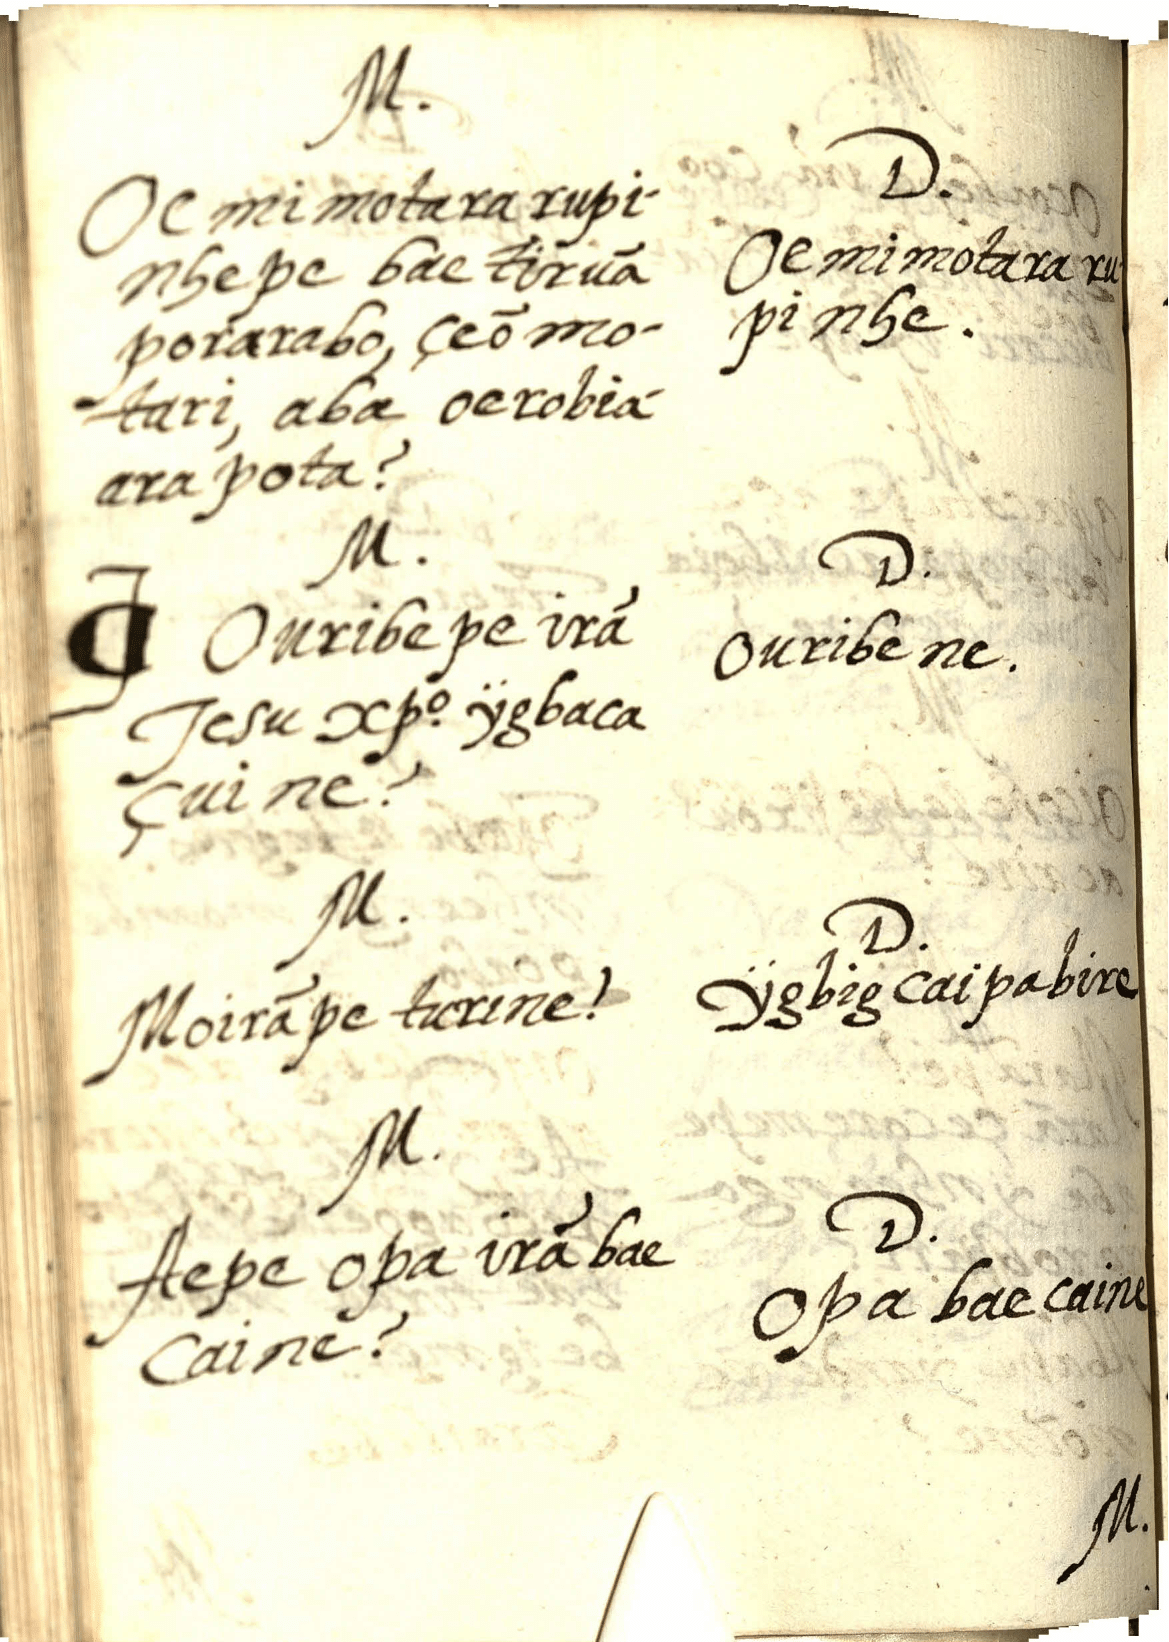 M.
Oe mi motara rupi-
nhe pe bae tiruã
porarabo, çeõ mo-
tari, aba oerobia-
ara pota?
D.
Oe mi motara ru-
pi nhe.
M.
Ouribe pe irã
Jesu xpº. ÿgbaca
çui ne?
D.
Ouribe ne.
M.
Moirãpe turine?
D.
Ÿgbig cai pabire
M.
Aepe opa irã bae
Caine?
D.
Opa bae caine
M.